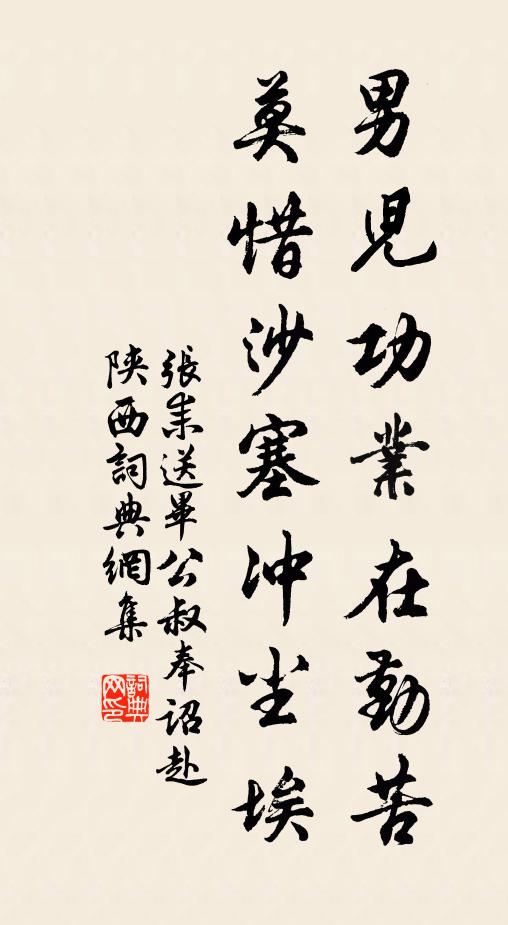 男兒功業在勤苦
莫惜沙塞冲尘埃
張耒送畢公叔奉詔赴
陝西詞典網集
詞典网印